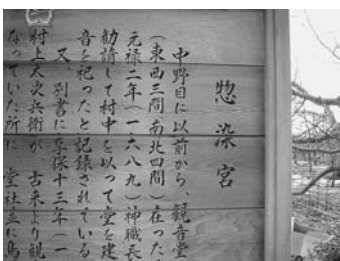 惣染宮
中野目に以前から、観音堂
(東西三間 南北四間)在った
元禄二年(一六八九)神職長
勧請して村中を以って堂を建
音を祀ったと記録されている
又 別書に享保十三年(一
村上太次兵衛が、古来より観
なっていた所に 堂社並に鳥